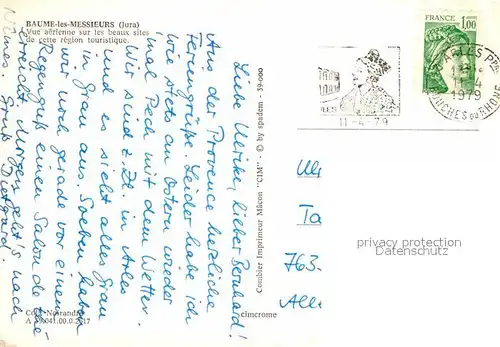 BAUME-les-MESSIEURS (Jura)
Vue aérienne sur les beaux sites
de cette région touristique.
Liebe Ulrike, lieber Bernhard!
Aus der Provence herzliche
Feriengrüße. Leider habe ich
wie stets an Ostern wieder
mal Pech mit dem Wetter.
Wir sind z. Zt. in Arles
und es sieht alles grau
in grau aus. Soeben haben
wir noch gerade vor einem
Regenguß einen Salon de thé
erreicht. Morgen geht's nach
Nîmes. Gruß Dietgard
Combier Imprimeur Mâcon "CIM" - © by spadem - 59-000
cimcrome
FRANCE
1,00
11-4-79
1979
BOUCHES DU RHONE
Ulr
Ta
763.
Alle
privacy protection
Datenschutz